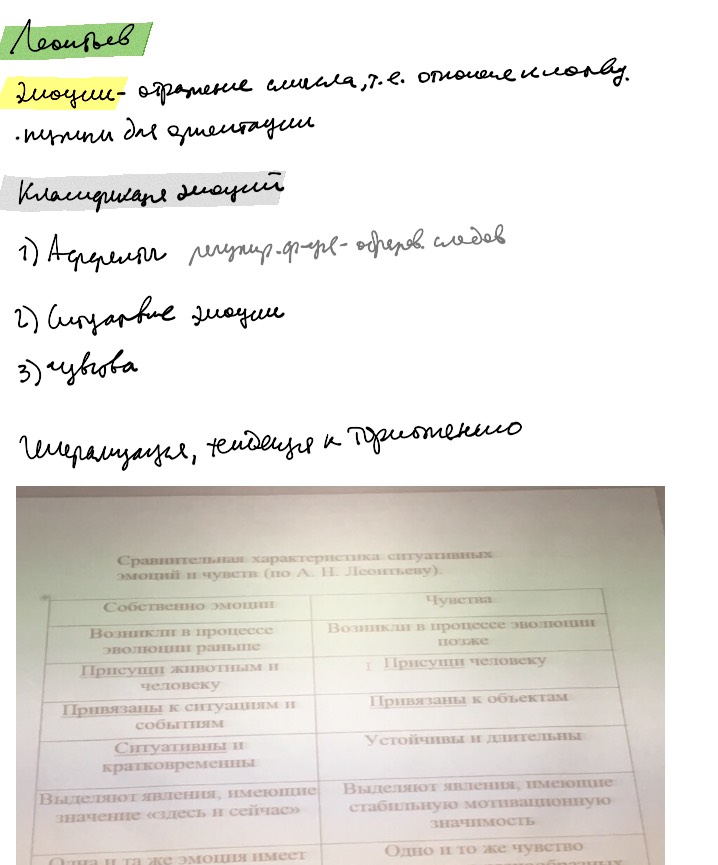 Леонтьев
Эмоции - отражение смысла, т.е. отношение к мотиву.
для ориентации
Классификация эмоций
1) Аффекты регулир. ф-ция - аффектив. следов
2) Ситуативные эмоции
3) Чувства
Генерализация, тенденция к
Сравнительная характеристика ситуативных
эмоций и чувств (по А. Н. Леонтьеву).
Собственно эмоции Чувства
Возникли в процессе эволюции раньше Возникли в процессе эволюции позже
Присущи животным и человеку Присущи человеку
Привязаны к ситуациям и событиям Привязаны к объектам
Ситуативны и кратковременны Устойчивы и длительны
Выделяют явления, имеющие значение «здесь и сейчас» Выделяют явления, имеющие стабильную мотивационную значимость
Одна и та же эмоция имеет Одно и то же чувство